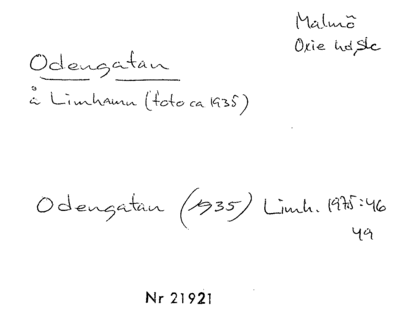 Malmö
Oxie hd, Sk
Odengatan
å Limhamn (foto ca 1935)
Odengatan (1935) Limh. 1975:46
49
Nr 21921